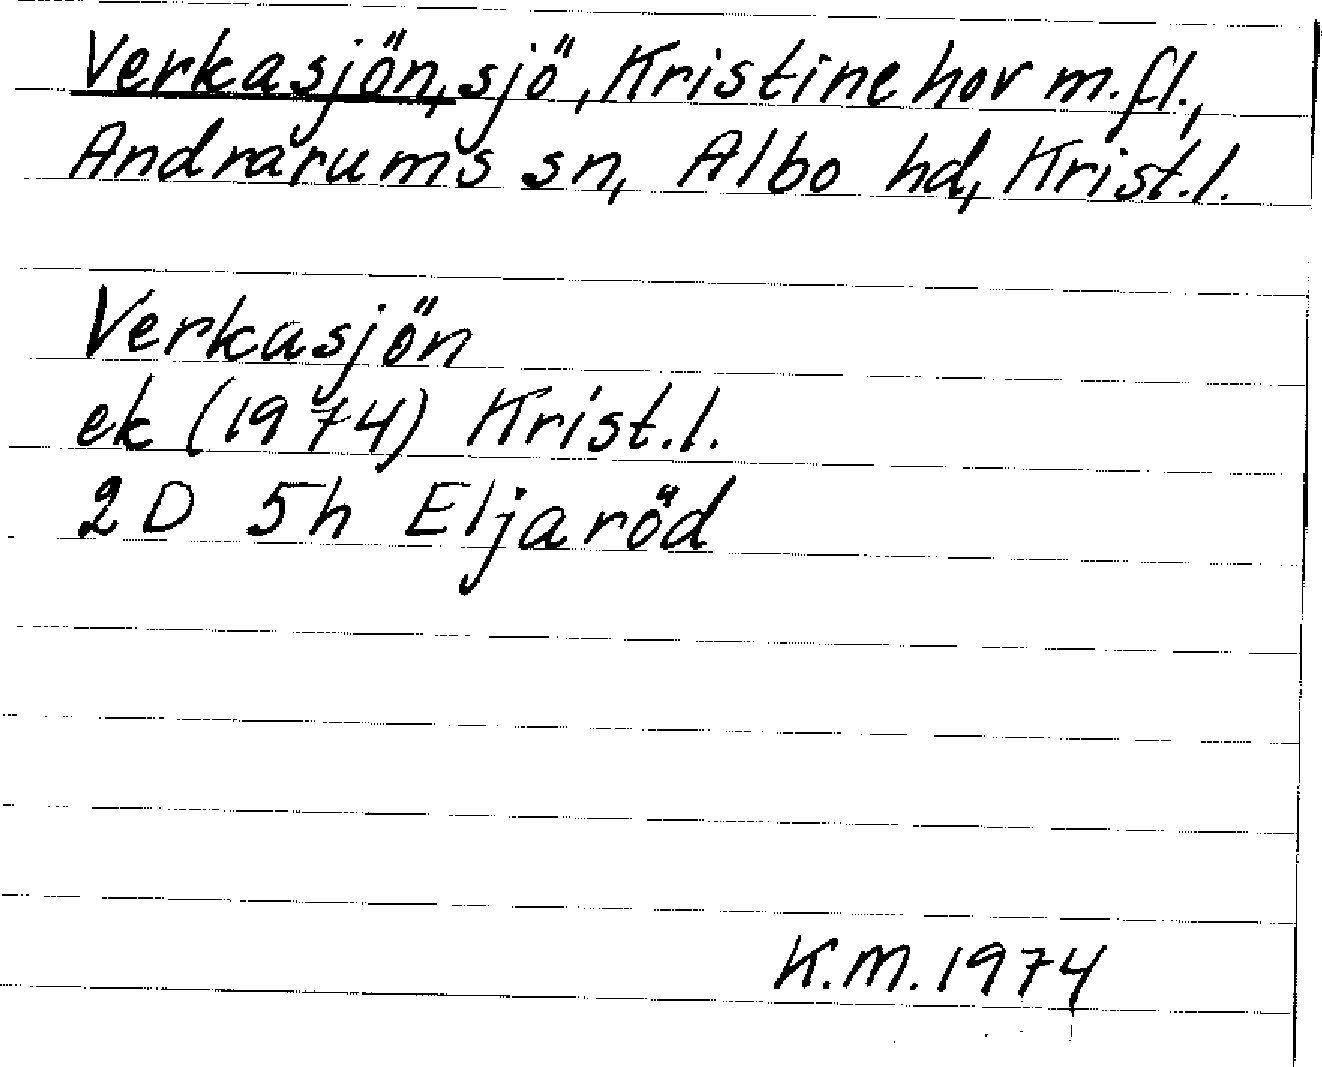 Verkasjön, sjö, Kristinehov m.fl.,
Andrarums sn, Albo hd, Krist.l.
Verkasjön
ek (1974) Krist.l.
2D 5h Eljaröd
K.M. 1974